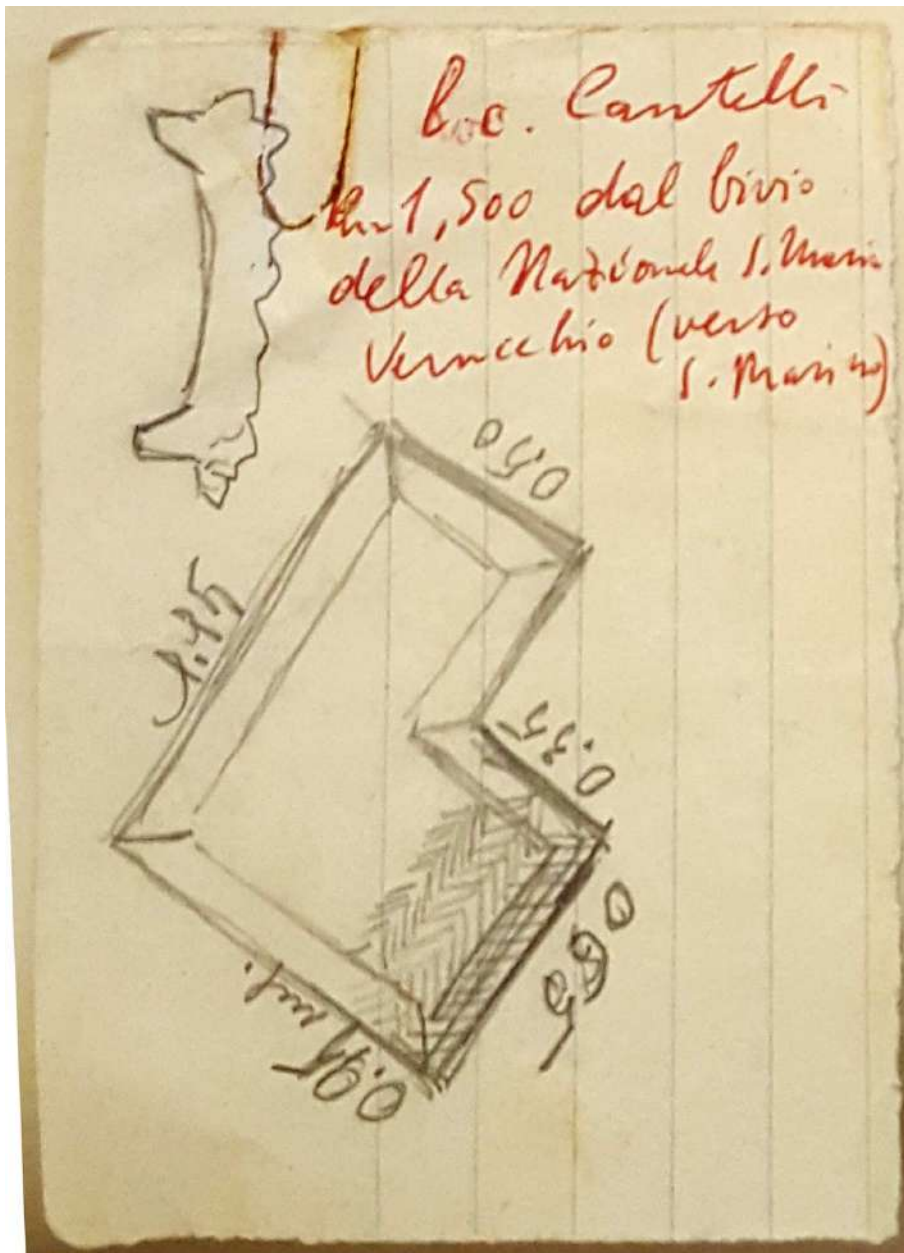 Loc. Cantelli
Km 1,500 dal bivio
della Nazionale S. Maria
Verucchio (verso
S. Marino)
0,50
1.45
0.35
0.65
0.95